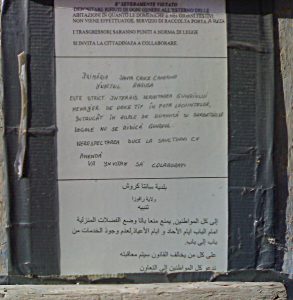 E' SEVERAMENTE VIETATO
DEPOSITARE RIFIUTI DI OGNI GENERE ALL'ESTERNO DELLE
ABITAZIONI IN QUANTO LE DOMENICHE E nei GIORNI FESTIVI
NON VIENE EFFETTUATO IL SERVIZIO DI RACCOLTA PORTA A PORTA
I TRASGRESSORI SARANNO PUNITI A NORMA DI LEGGE
SI INVITA LA CITTADINANZA A COLLABORARE.
PRIMĂRIA SANTA CROCE CAMERINA
RAGUSA
ESTE STRICT INTERZIS DEPOZITAREA GUNOIULUI
MENAJER DE ORICE TIP ÎN FAȚA LOCUINȚELOR,
ÎNTRUCÂT ÎN ZILELE DE DUMINICĂ ȘI SĂRBĂTORI
LEGALE NU SE RIDICĂ GUNOIUL.
NERESPECTAREA DUCE LA SANCȚIUNI CU
AMENDĂ
VĂ INVITĂM SĂ COLABORAȚI
بلدية سانتا كروش
ولاية راقوزا
تنبيه
إلى كل المواطنين, يمنع منعا باتا وضع الفضلات المنزلية
امام الباب ايام الآحاد و ايام الأعياد, لعدم وجود الخدمات من
باب إلى باب.
على كل من يخالف القانون سيتم معاقبته
ندعو كل المواطنين إلى التعاون